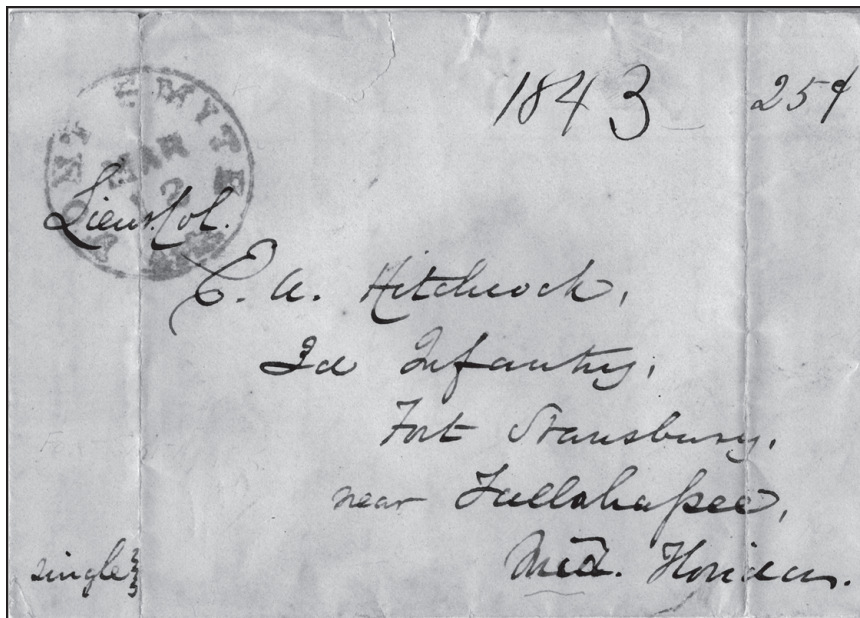 1843 25¢
MAR
Lieut. Col.
E. A. Hitchcock,
3d Infantry,
Fort Stansbury,
near Tallahassee,
Mid. Florida.
single